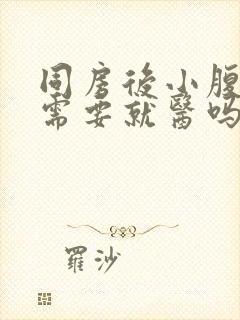 同房後小腹
需要就醫嗎
羅沙